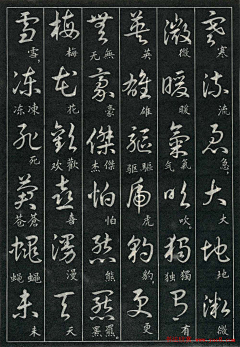 寒流急大地微
寒流急大地微
微暖氣吹獨有
微暖氣气吹,獨独有
英雄驅虎豹更
英雄驅驱虎豹,更
無豪傑怕熊羆
無无豪傑杰怕熊羆罴
梅花歡喜漫天
梅花歡欢喜漫天
雪凍死蒼蠅未
雪,凍冻死蒼苍蠅蝇未